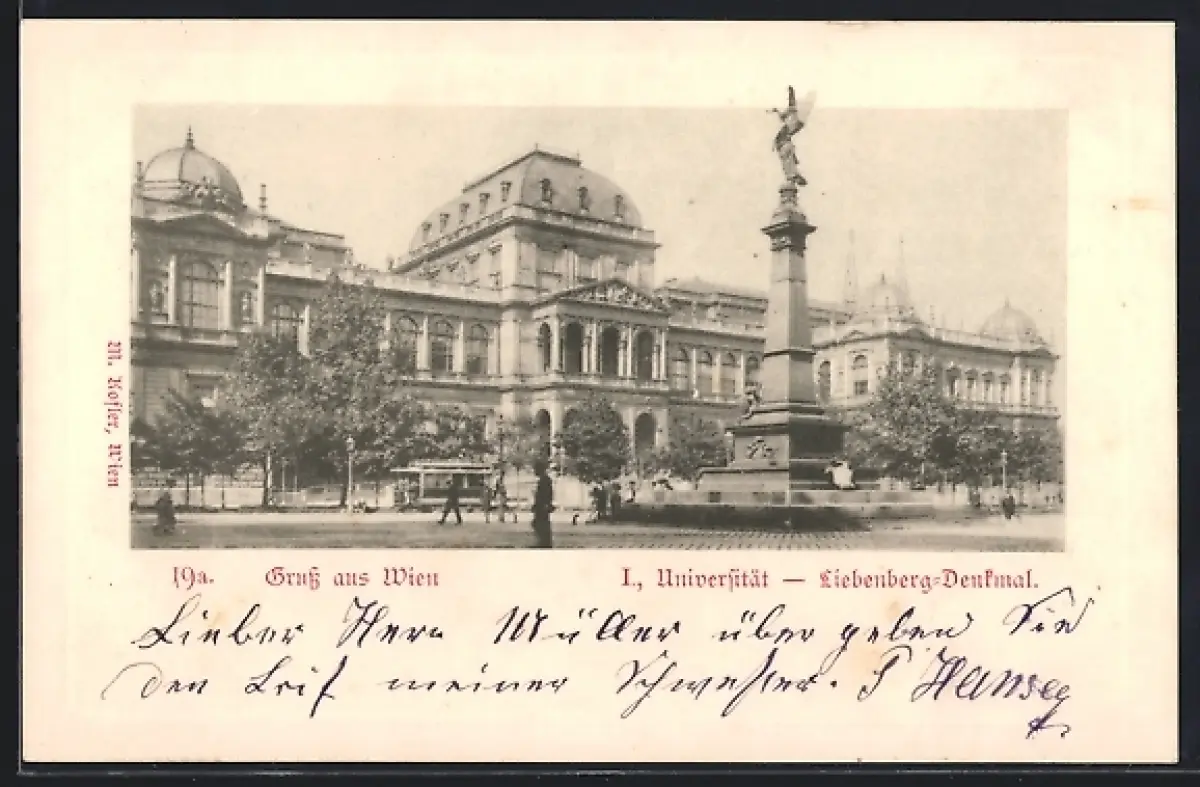 M. Kofler, Wien
19a. Gruß aus Wien I., Universität — Liebenberg-Denkmal.
Lieber Herr Müller übergeben Sie
den meiner Schwester.